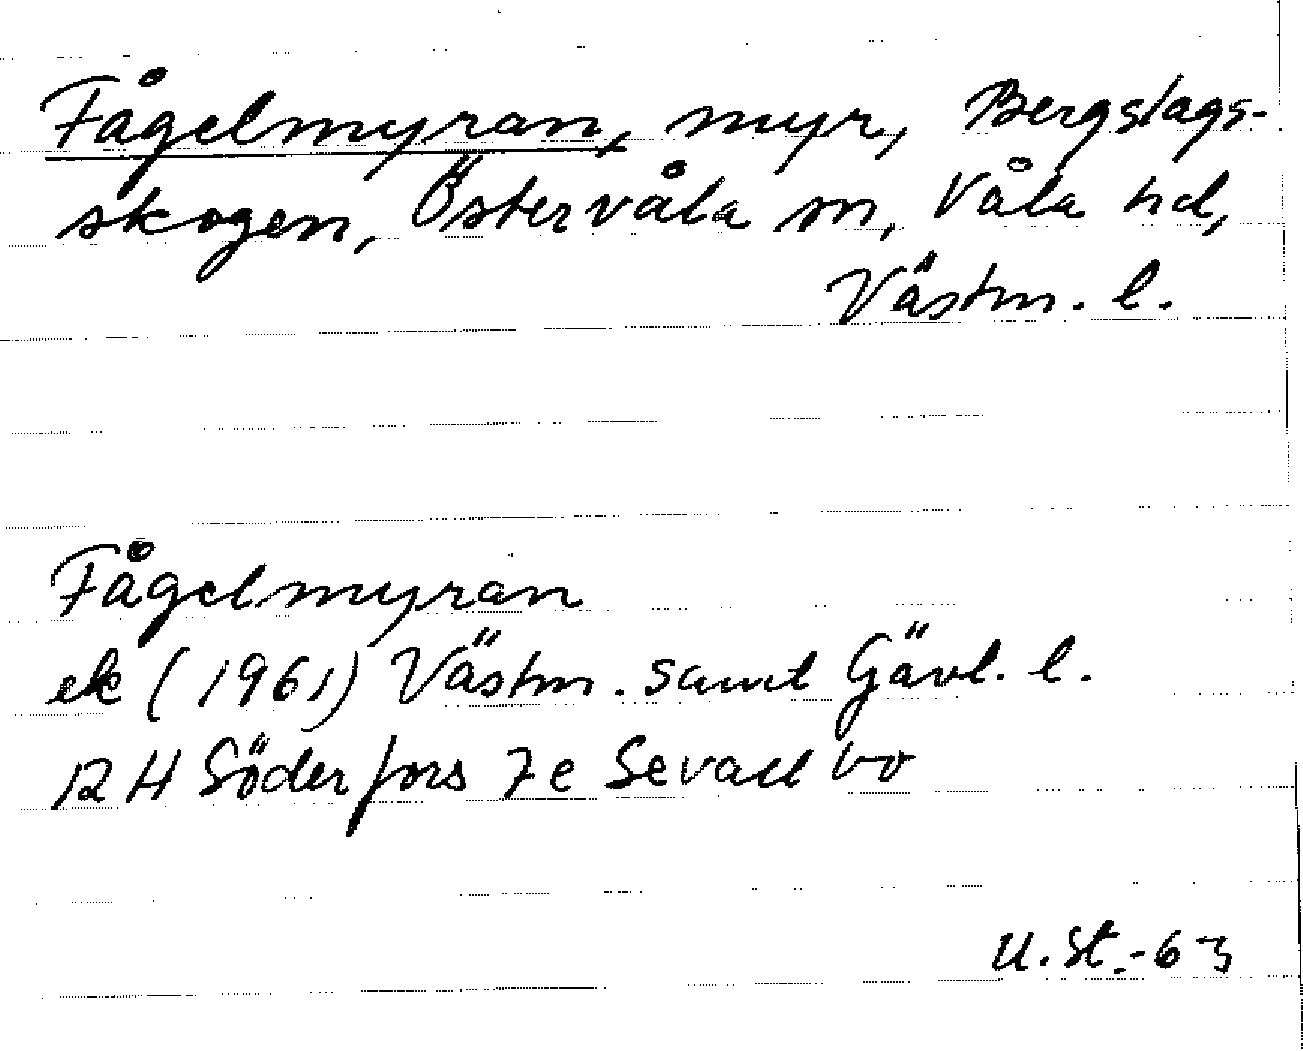 Fågelmyran, myr, Bergslags-
skogen, Östervåla sn, Våla hd,
Västm. l.
Fågelmyran
ek (1961) Västm. samt Gävl. l.
12 H Söderfors 7 e Sevallbo
U. St. -63